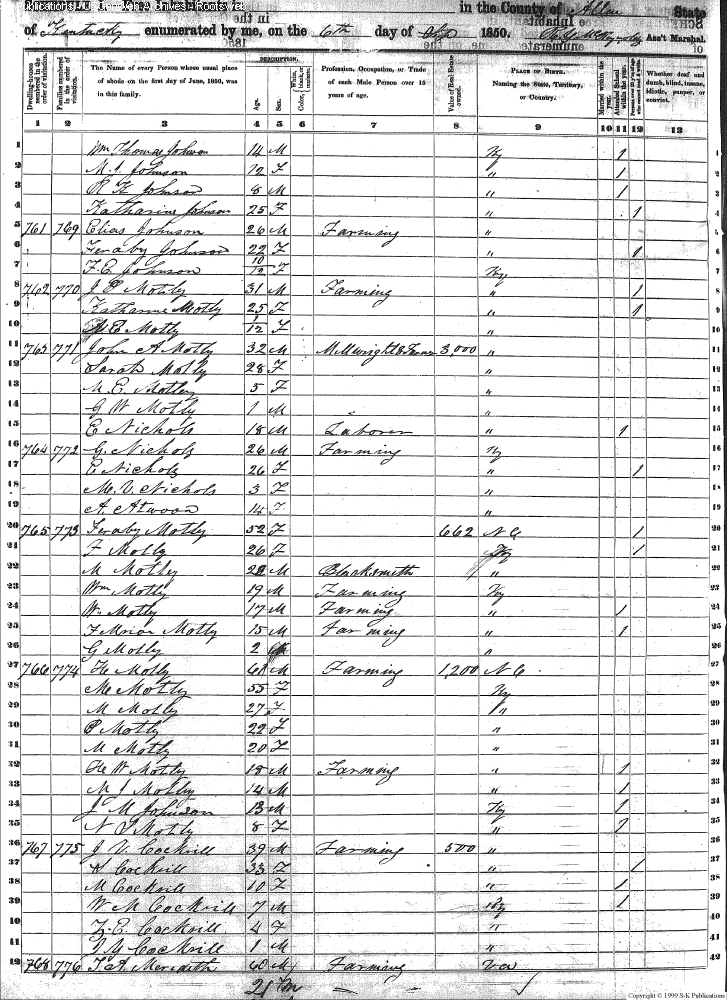 in the County of Allen State
of Kentucky enumerated by me, on the 6th day of Sep 1850. Ass't Marshal.
Dwelling-houses numbered in the order of visitation.
Families numbered in the order of visitation.
The Name of every Person whose usual place of abode on the first day of June, 1850, was in this family.
DESCRIPTION.
Age.
Sex.
Color, White, black, or mulatto.
Profession, Occupation, or Trade of each Male Person over 15 years of age.
Value of Real Estate owned.
PLACE OF BIRTH. Naming the State, Territory, or Country.
Married within the year.
Attended School within the year.
Whether deaf and dumb, blind, insane, idiotic, pauper, or convict.
1 2 3 4 5 6 7 8 9 10 11 12 13
1 Wm Thomas Johnson 14 M Ky 1
2 M. J. Johnson 12 F " 1
3 R K Johnson 8 M " 1
4 Katharine Johnson 25 F " 1
5 761 769 Elias Johnson 26 M Farming "
6 Feraby Johnson 22 F " 1
7 F. E. Johnson 10/12 F Ky
8 762 770 J P Motly 31 M Farming " 1
9 Katharine Motly 25 F " 1
10 M E Motly 1/12 F "
11 763 771 John A Motly 32 M Millwright & Farmer 3,000 "
12 Sarah Motly 28 F "
13 M. E. Motley 5 F "
14 G W Motly 1 M "
15 E Nichols 18 M Laborer " 1
16 764 772 G. Nichols 26 M Farming Ky
17 E Nichols 26 F " 1
18 M. V. Nichols 3 F "
19 A. Atwood 14 F "
20 765 773 Feraby Motly 52 F 662 N C 1
21 F Motly 26 F Ky 1
22 M Motley M Blacksmith "
23 Wm Motly 19 M Farming Ky
24 W. Motly 17 M Farming " 1
25 Motly 15 M Farming " 1
26 G Motly 2 M "
27 766 774 He Motly 61 M Farming 1,200 N C.
28 M Motly 55 F Ky
29 M Motly 27 F "
30 P Motly 22 F "
31 M Motly 20 F "
32 He W Motly 18 M Farming " 1
33 M J Motley 14 M " 1
34 J M Johnson 13 M Ky 1
35 N J Motly 8 F " 1
36 767 775 J V Cockrill 39 M Farming 500 "
37 H Cockrill 33 F " 1
38 M Cockrill 10 F " 1
39 W M Cockrill 7 M Ky 1
40 Z. E. Cockrill 4 F "
41 J M Cockrill 1 M "
42 768 776 Meredith 60 M Farming Va
21 M
Copyright © 1999 S-K Publications